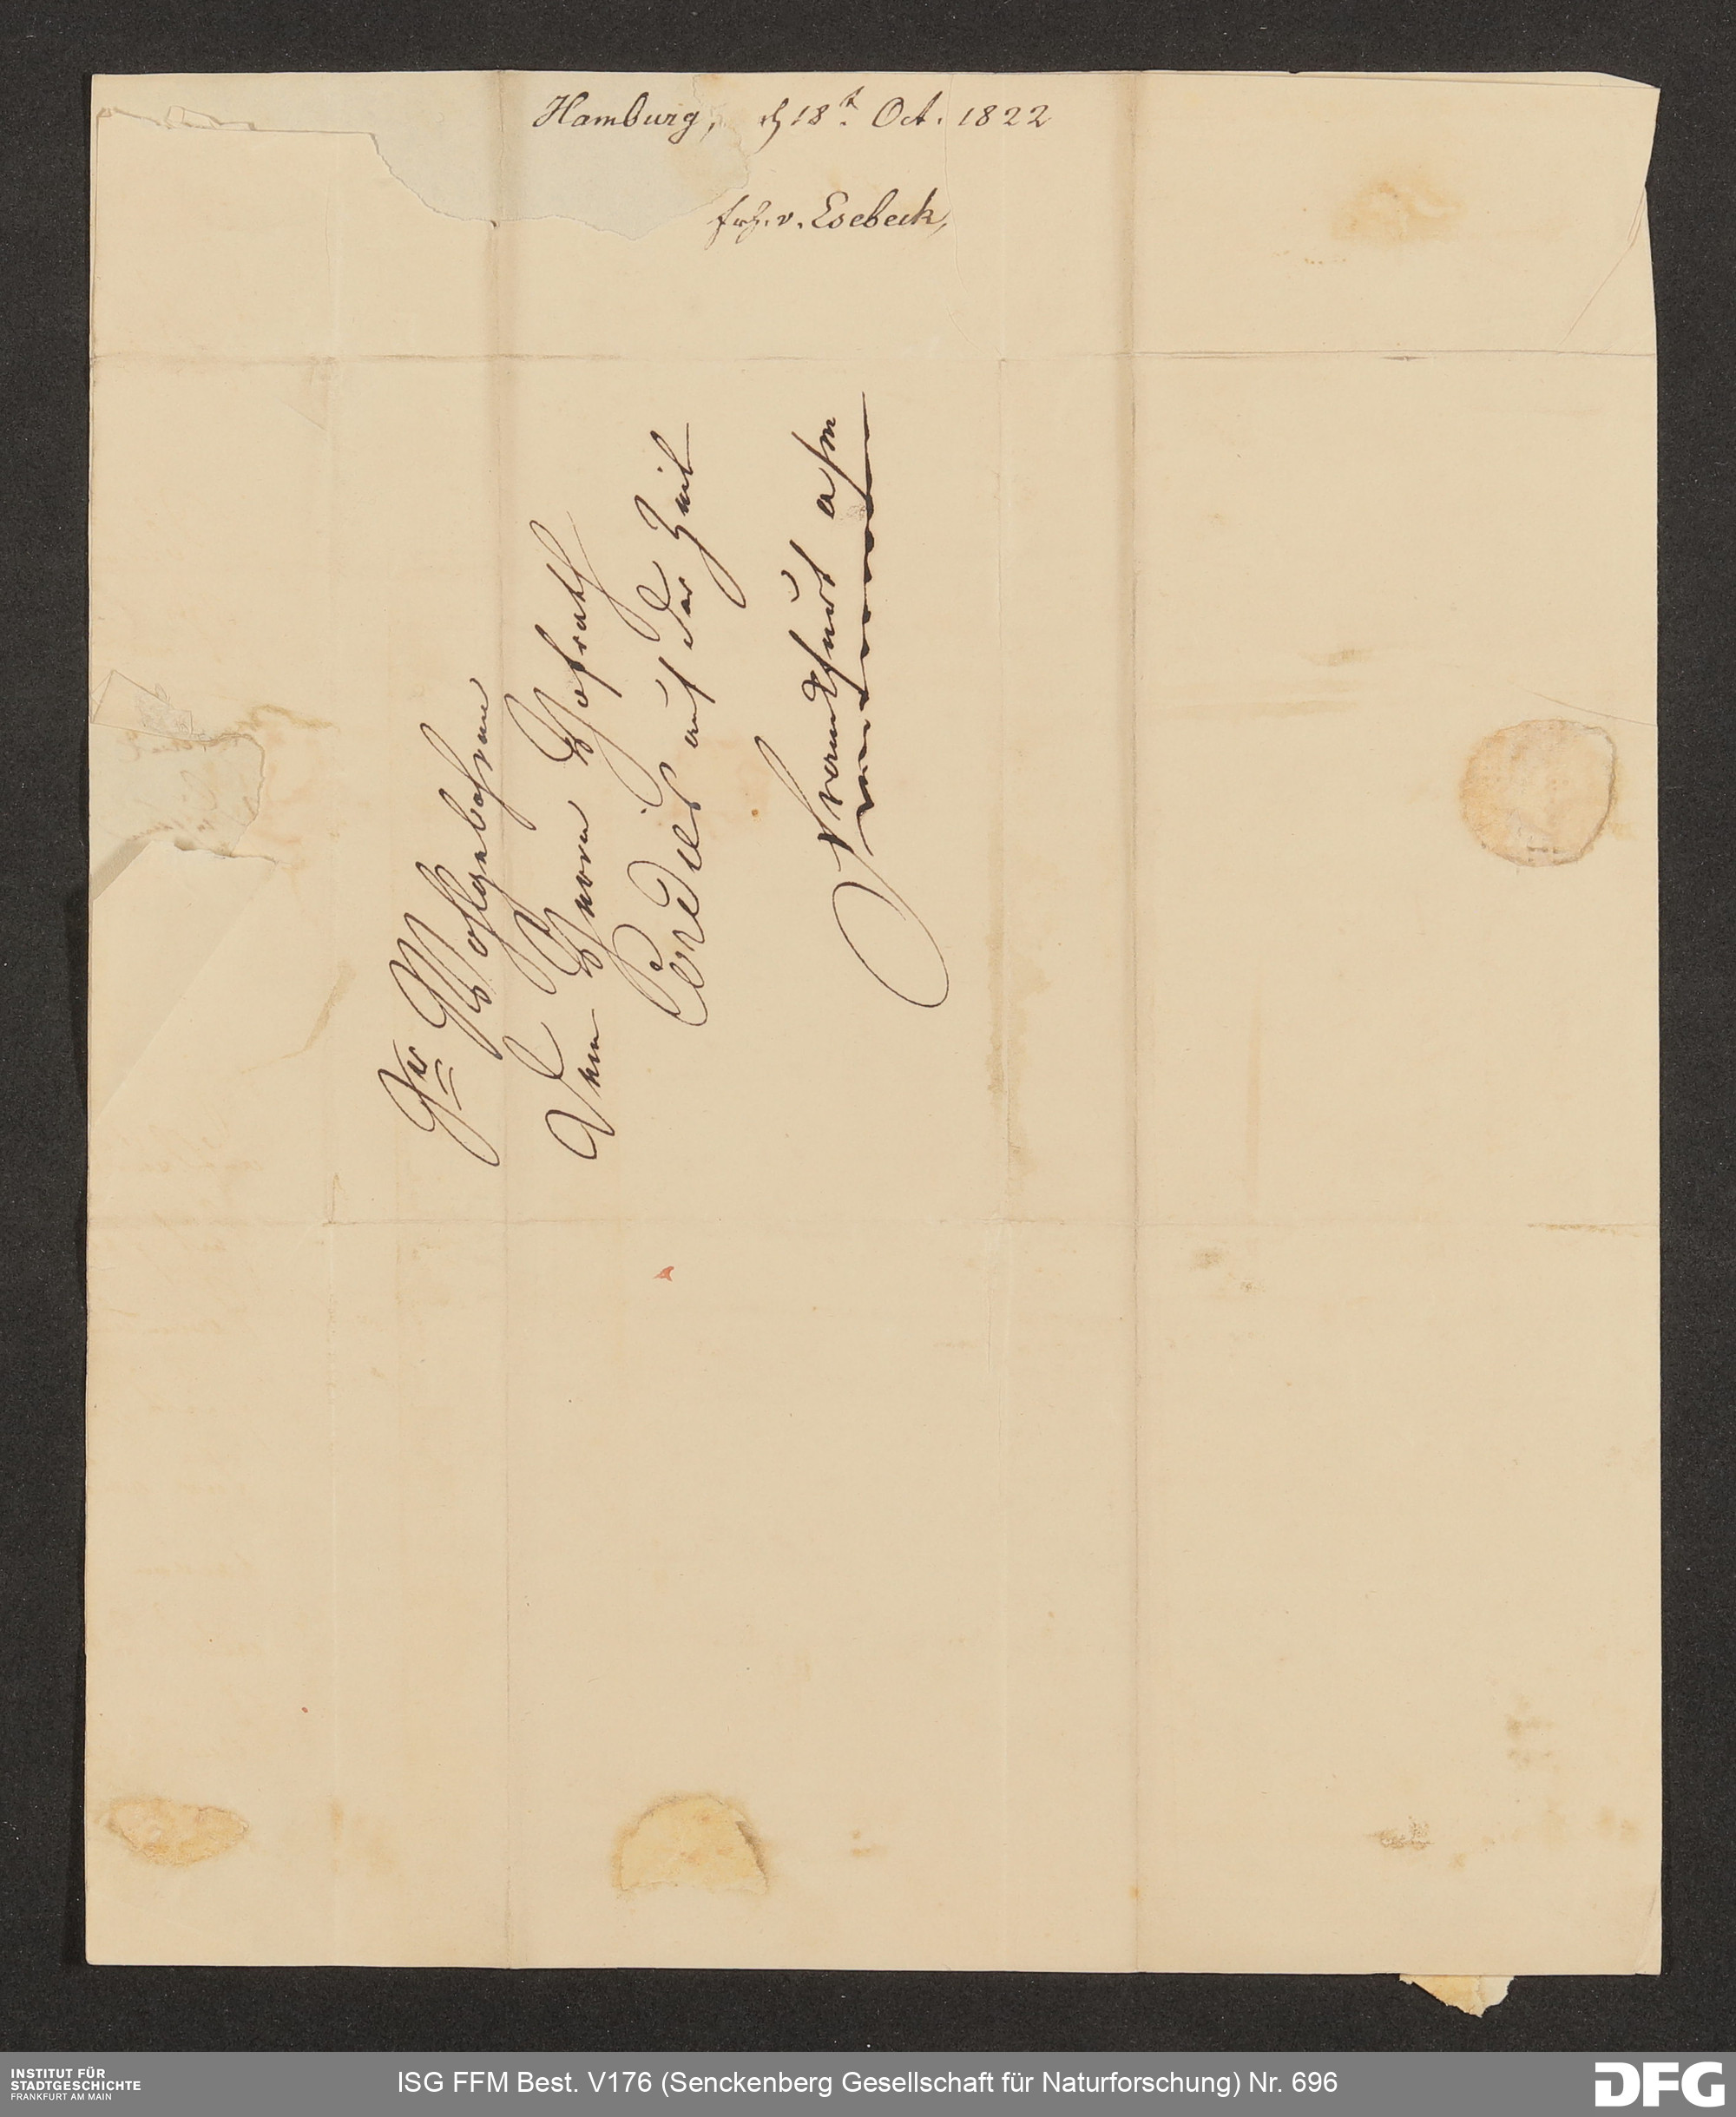 Hamburg, d 18t. Oct. 1822
frh. v. Esebeck,
Sr Wohlgebohren
Dem Herrn Hofrath
Cordier auf der Zeil
Frankfurt a/m
INSTITUT FÜR
STADTGESCHICHTE
FRANKFURT AM MAIN
ISG FFM Best. V176 (Senckenberg Gesellschaft für Naturforschung) Nr. 696
DFG